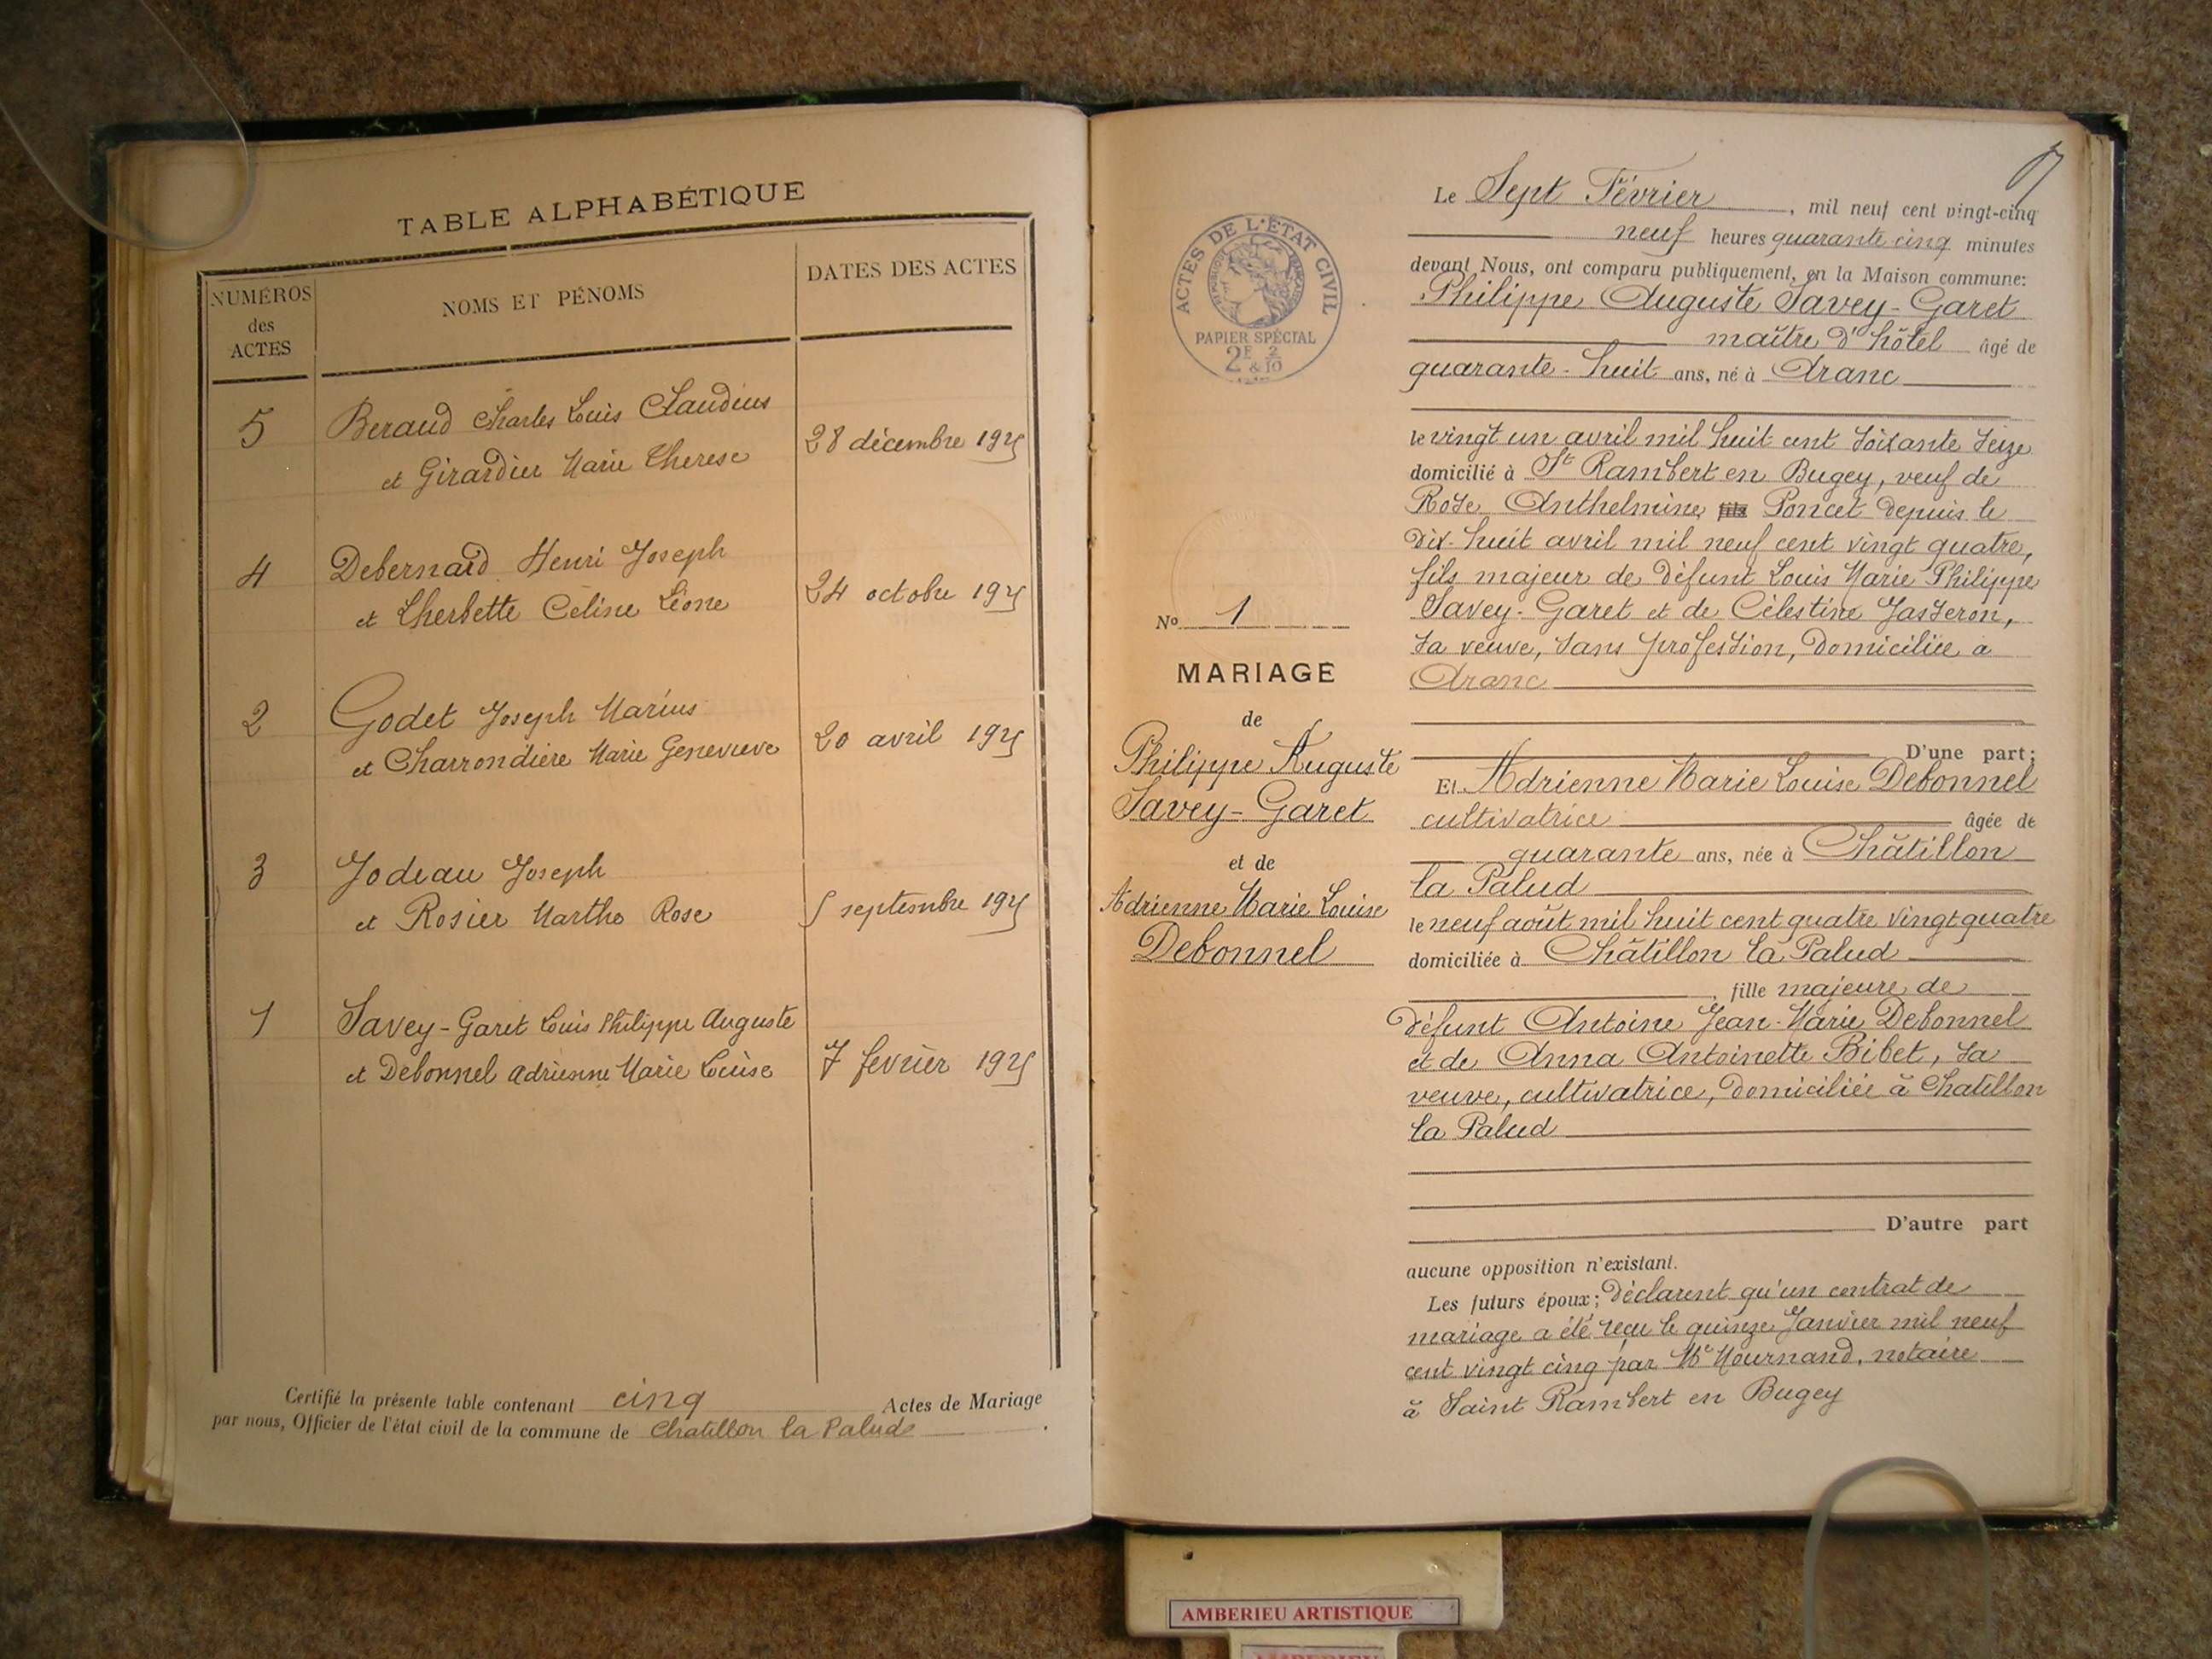 TABLE ALPHABÉTIQUE
NUMÉROS
des
ACTES
NOMS ET PÉNOMS
DATES DES ACTES
5
Beraud Charles Louis Claudius
et Girardier Marie Therese
28 décembre 1925
4
Debernard Henri Joseph
et Lherbette Celine Léone
24 octobre 1925
2
Godet Joseph Marius
et Charrondiere Marie Genevieve
20 avril 1925
3
Jodeau Joseph
et Rosier Marthe Rose
5 septembre 1925
1
Savey-Garet Louis Philippe Auguste
et Debonnel Adrienne Marie Louise
7 fevrier 1925
Certifié la présente table contenant cinq Actes de Mariage
par nous, Officier de l'état civil de la commune de Chatillon la Palud .
ACTES DE L'ÉTAT CIVIL
PAPIER SPÉCIAL
2F & 2/10
No 1
MARIAGE
de
Philippe Auguste
Savey-Garet
et de
Adrienne Marie Louise
Debonnel
Le Sept Février , mil neuf cent vingt-cinq
neuf heures quarante cinq minutes
devant Nous, ont comparu publiquement, en la Maison commune:
Philippe Auguste Savey-Garet
maître d'hôtel âgé de
quarante-huit ans, né à Aranc
le vingt un avril mil huit cent soixante seize
domicilié à St Rambert en Bugey, veuf de
Rose Anthelmine fils Poncet depuis le
dix-huit avril mil neuf cent vingt quatre,
fils majeur de défunt Louis Marie Philippe
Savey-Garet et de Célestine Jasseron,
sa veuve, sans profession, domiciliée à
Aranc
D'une part;
Et Adrienne Marie Louise Debonnel
cultivatrice âgée de
quarante ans, née à Châtillon
la Palud
le neuf août mil huit cent quatre vingt quatre
domiciliée à Châtillon la Palud
, fille majeure de
défunt Antoine Jean-Marie Debonnel
et de Anna Antoinette Bibet, sa
veuve, cultivatrice, domiciliée à Chatillon
la Palud
D'autre part
aucune opposition n'existant.
Les futurs époux; déclarent qu'un contrat de
mariage a été reçu le quinze Janvier mil neuf
cent vingt cinq par Me Mournand, notaire
à Saint Rambert en Bugey
AMBERIEU ARTISTIQUE
AMBERIEU